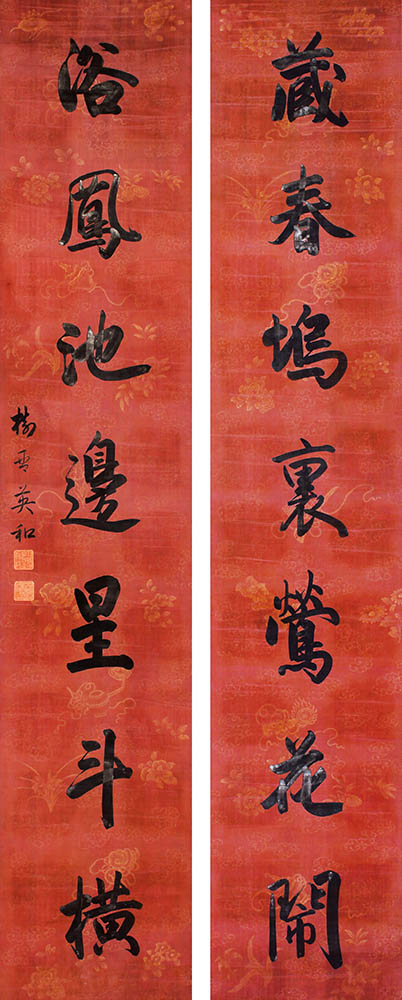 藏春塢裏鶯花鬧
浴鳳池邊星斗橫
英和